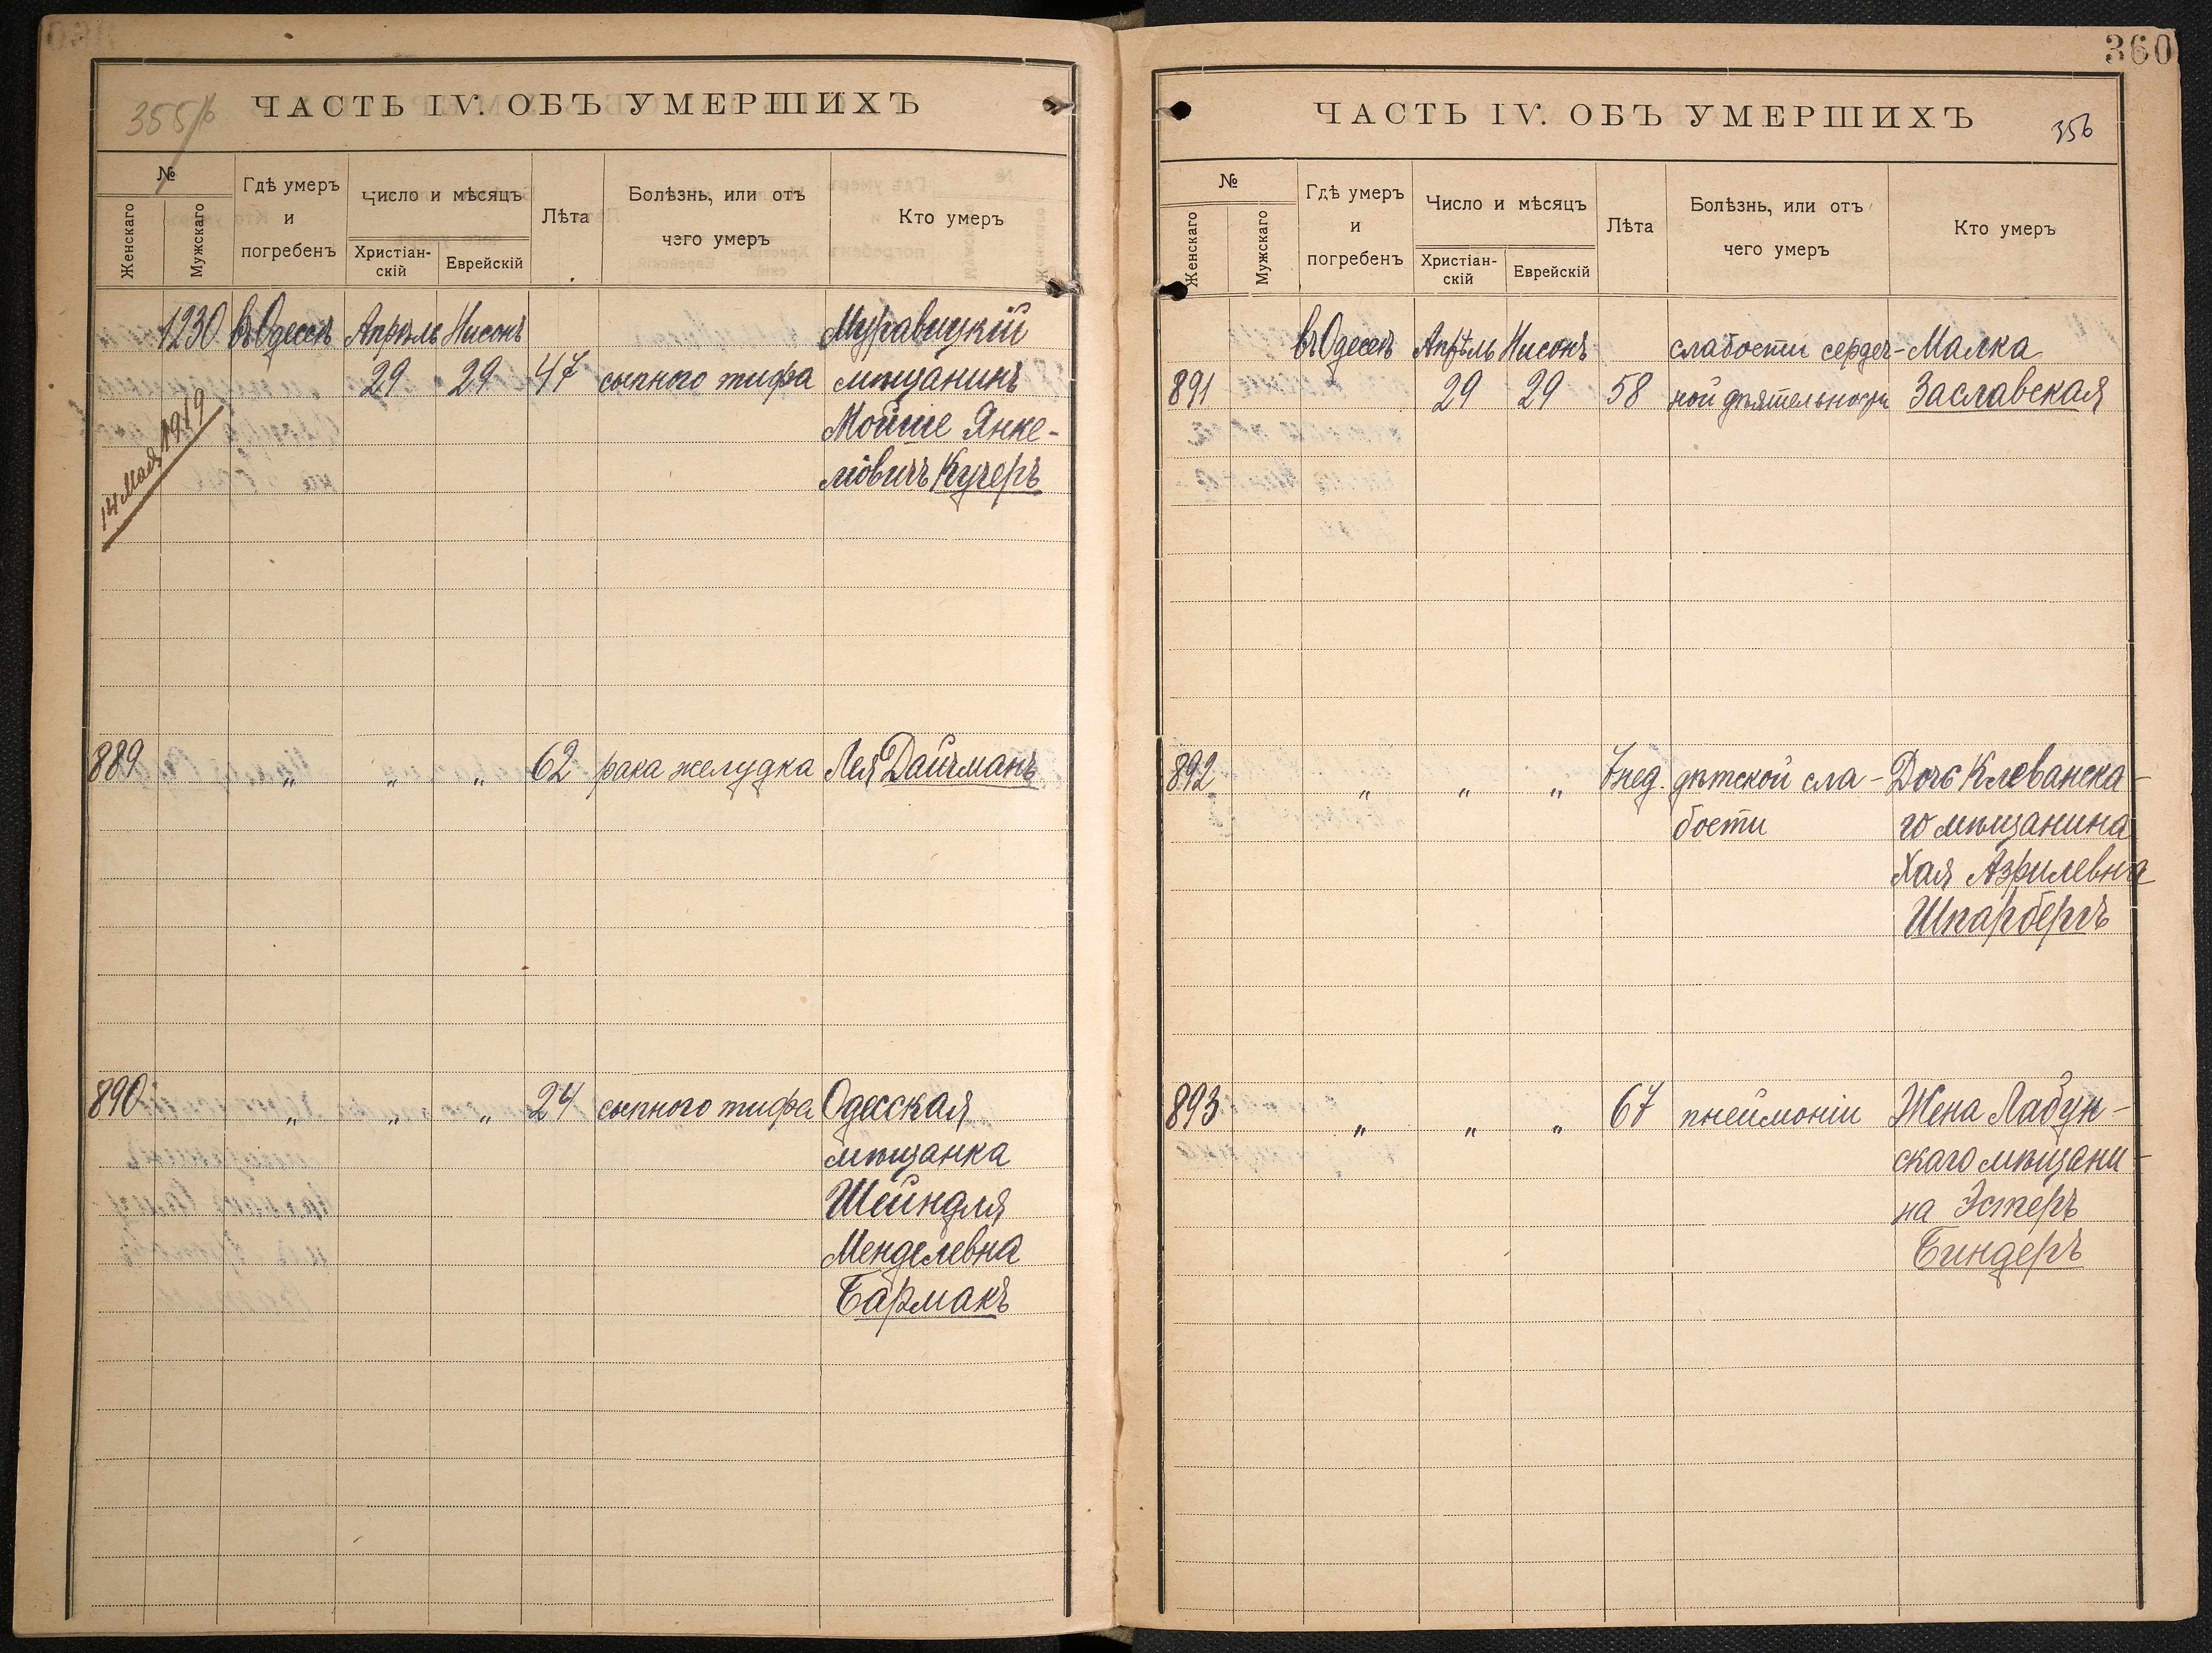 355/б
ЧАСТЬ IV. ОБЪ УМЕРШИХЪ
№
Женскаго
Мужскаго
Гдѣ умеръ
и
погребенъ
Число и мѣсяцъ
Христіан-
скій
Еврейскій
Лѣта
Болѣзнь, или отъ
чего умеръ
Кто умеръ
1230 въ Одессѣ Апрѣль Нисонъ Муравицкій
29 29 47 сыпного тифа мѣщанинъ
Мойше Янке-
левичъ Кучеръ
14 Мая 1919
889 „ „ „ 62 рака желудка Лея Дайчманъ
890 „ „ „ 24 сыпного тифа Одесская
мѣщанка
Шейндля
Менделевна
Бармакъ
360
ЧАСТЬ IV. ОБЪ УМЕРШИХЪ
356
№
Женскаго
Мужскаго
Гдѣ умеръ
и
погребенъ
Число и мѣсяцъ
Христіан-
скій
Еврейскій
Лѣта
Болѣзнь, или отъ
чего умеръ
Кто умеръ
въ Одессѣ Апрѣль Нисонъ слабости сердеч- Малка
891 29 29 58 ной дѣятельности Заславская
892 „ „ „ 7 нед. дѣтской сла- Дочь Клеванска-
бости го мѣщанина
Хая Азрилевна
Шпарбергъ
893 „ „ „ 67 пнеймоніи Жена Лабун-
скаго мѣщани-
на Эстеръ
Биндеръ